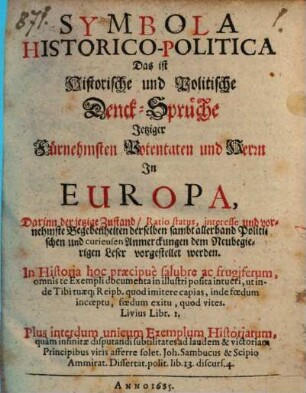 871.
SYMBOLA
HISTORICO-POLITICA
Das ist
Historische und Politische
Denck-Sprüche
Jetziger
Fürnehmsten Potentaten und Herrn
In
EUROPA,
Darinn der jetzige Zustand / Ratio status, interesse und vor-
nehmste Begebenheiten derselben sambt allerhand Politi-
schen und curieusen Anmerckungen dem Neubegie-
rigen Leser vorgestellet werden.
In Historia hoc præcipuè salubre ac frugiferum,
omnis te Exempli documenta in illustri posita intueri, ut in-
de Tibi tuæq; Reipb. quod imitere capias, inde fœdum
inceptu, fœdum exitu, quod vites.
Livius Libr. 1,
Plus interdum unicum Exemplum Historiarum,
quàm infinitæ disputandi subtilitates ad laudem & victoriam
Principibus viris afferre solet. Joh. Sambucus & Scipio
Ammirat. Dissertat. polit. lib. 13. discurs. 4.
ANNO 1685.